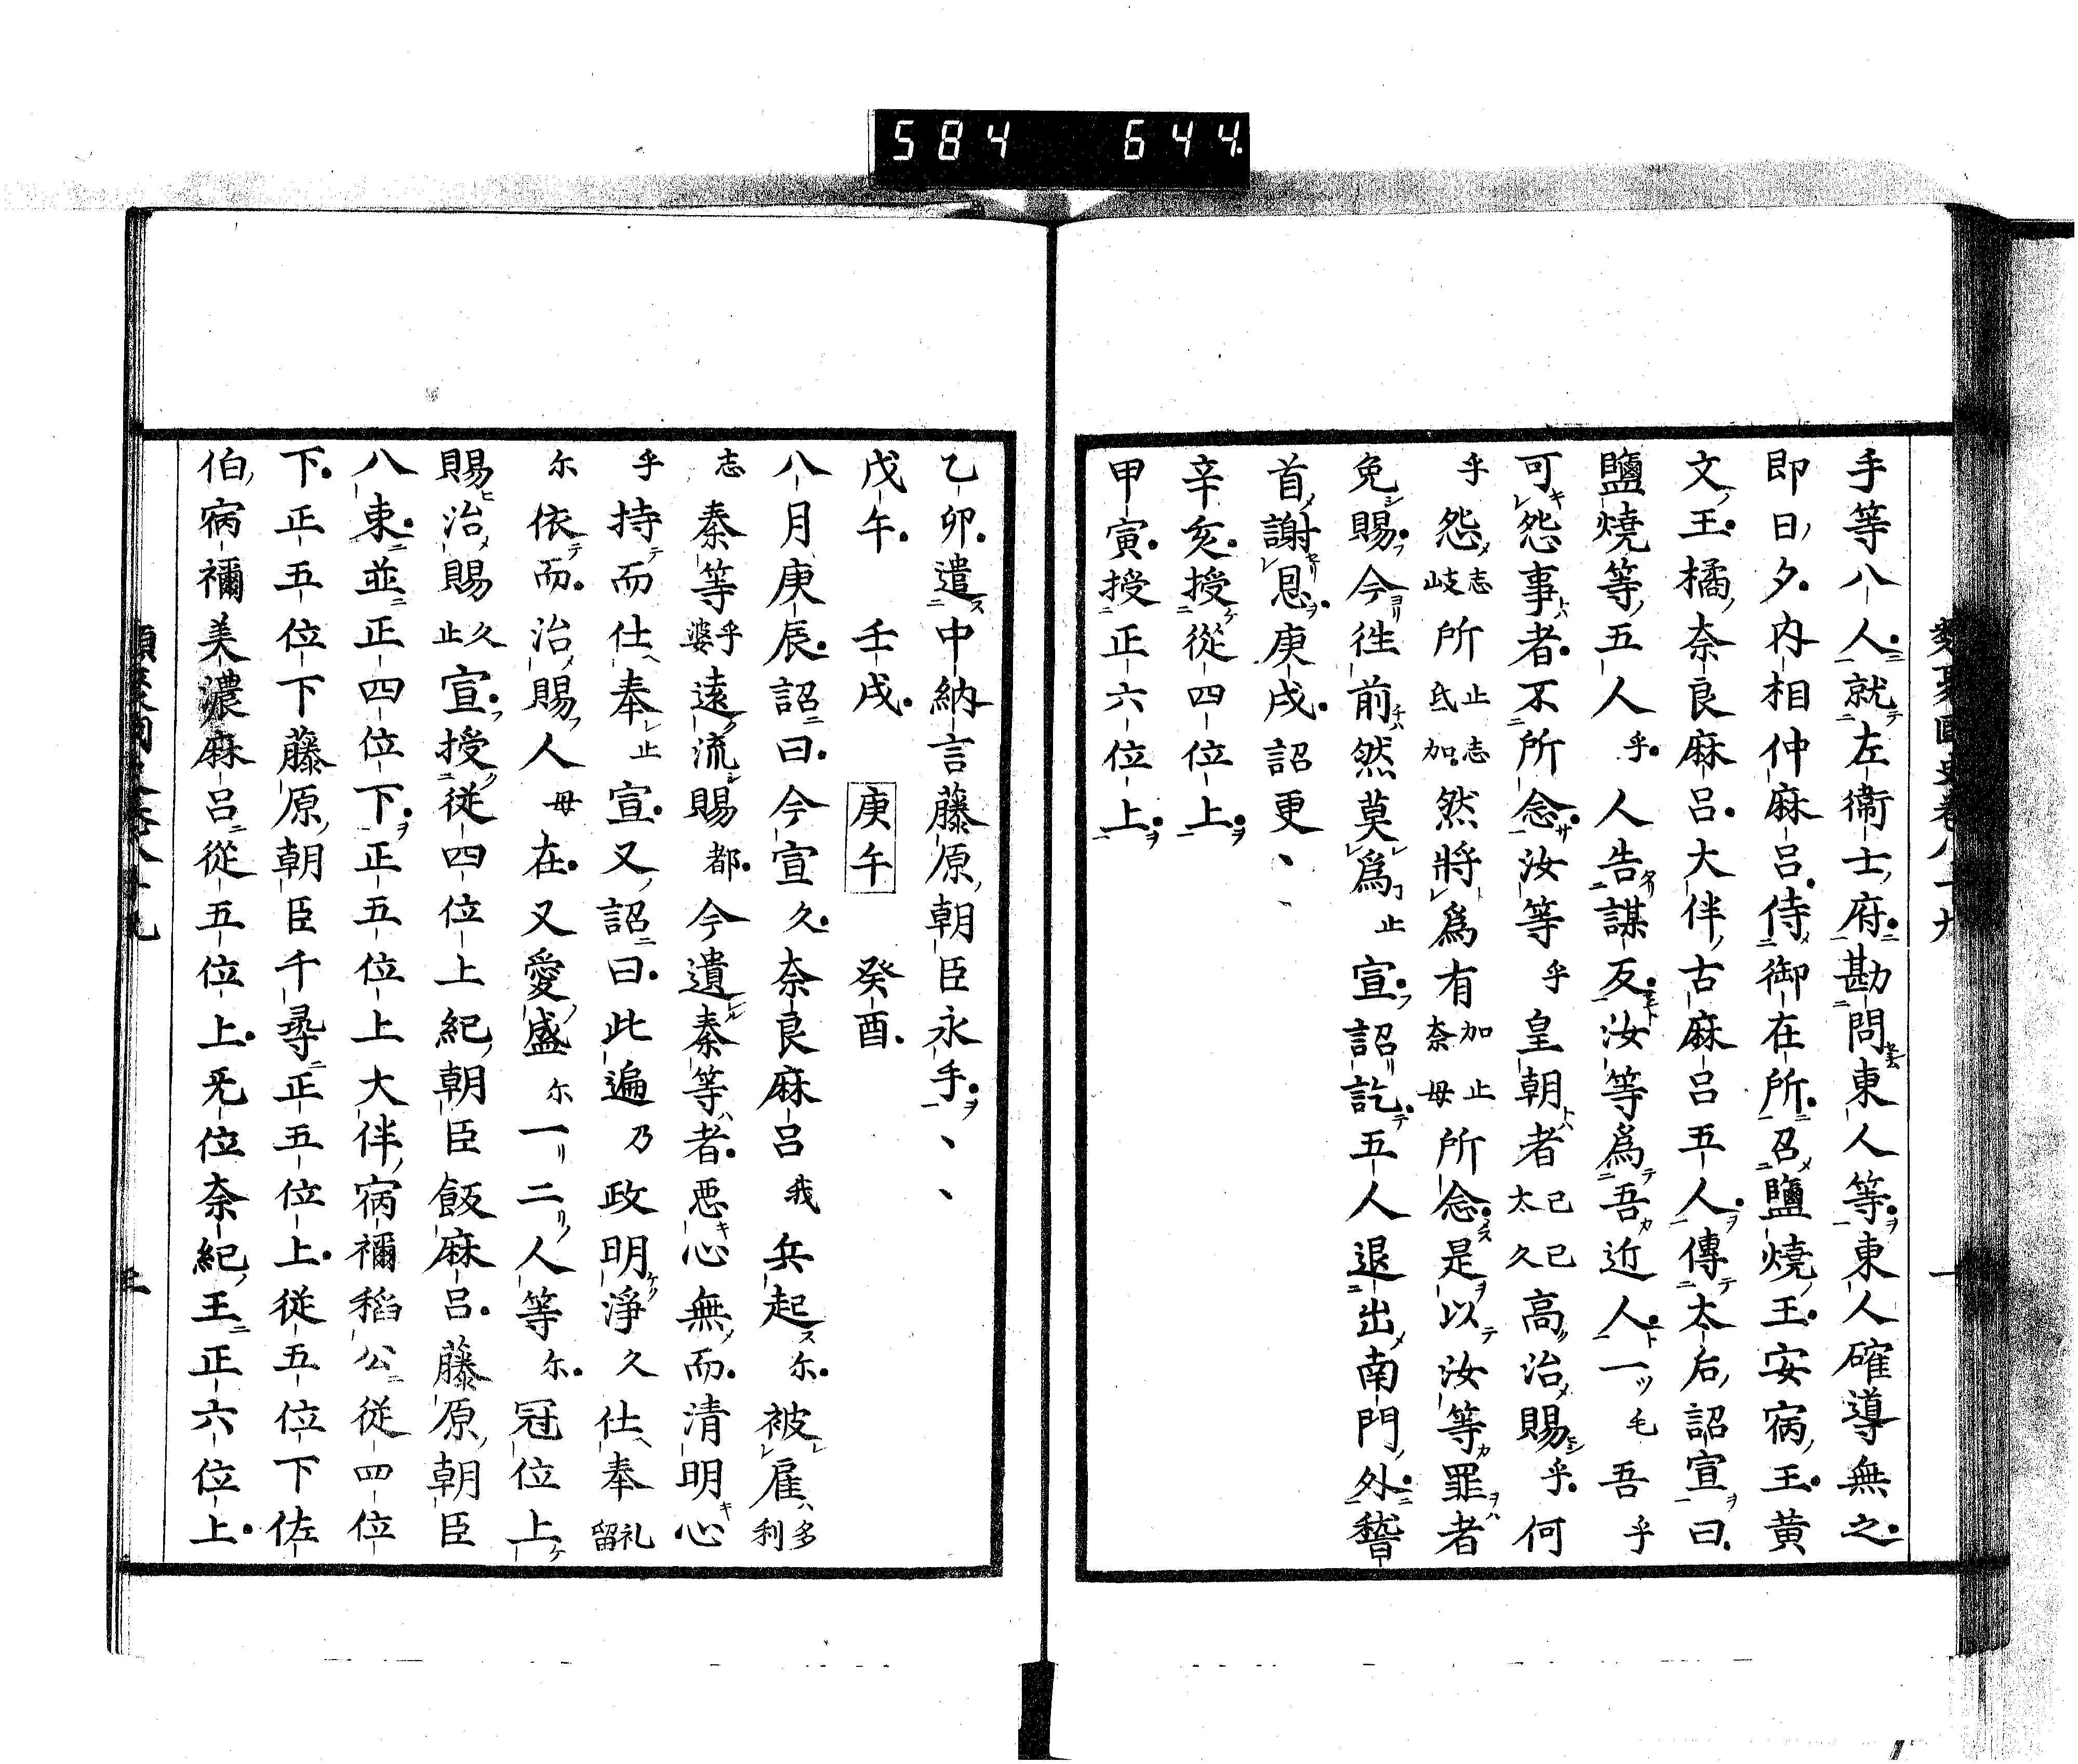 584 644
手等八人就左衞士府勘問東人等東人確導無之
即日夕內相仲麻呂侍御在所召鹽燒王安宿王黃
文王橘奈良麻呂大伴古麻呂五人傳太后詔宣曰
鹽燒等五人乎人告謀反汝等爲吾近人一毛吾乎
可怨事者不所念汝等乎皇朝者己己太久高治賜乎何
乎怨志岐所止志氐加然將爲有加止奈毋所念是以汝等罪者
免賜今徃前然莫爲止宣詔訖五人退出南門外稽
首謝恩庚戌詔更、、
辛亥授從四位上
甲寅授正六位上
乙卯遣中納言藤原朝臣永手、、
戊午 壬戌 庚午 癸酉
八月庚辰詔曰今宣久奈良麻呂我兵起尓被雇多利
志秦等乎婆遠流賜都今遺秦等者惡心無而清明心
乎持而仕奉止宣又詔曰此遍乃政明淨久仕奉礼留
尓依而治賜人毋在又愛盛尓一二人等尓冠位上
賜治賜久止宣授從四位上紀朝臣飯麻呂藤原朝臣
八束並正四位下正五位上大伴宿禰稻公從四位
下正五位下藤原朝臣千尋正五位上從五位下佐
伯宿禰美濃麻呂從五位上无位奈紀王正六位上